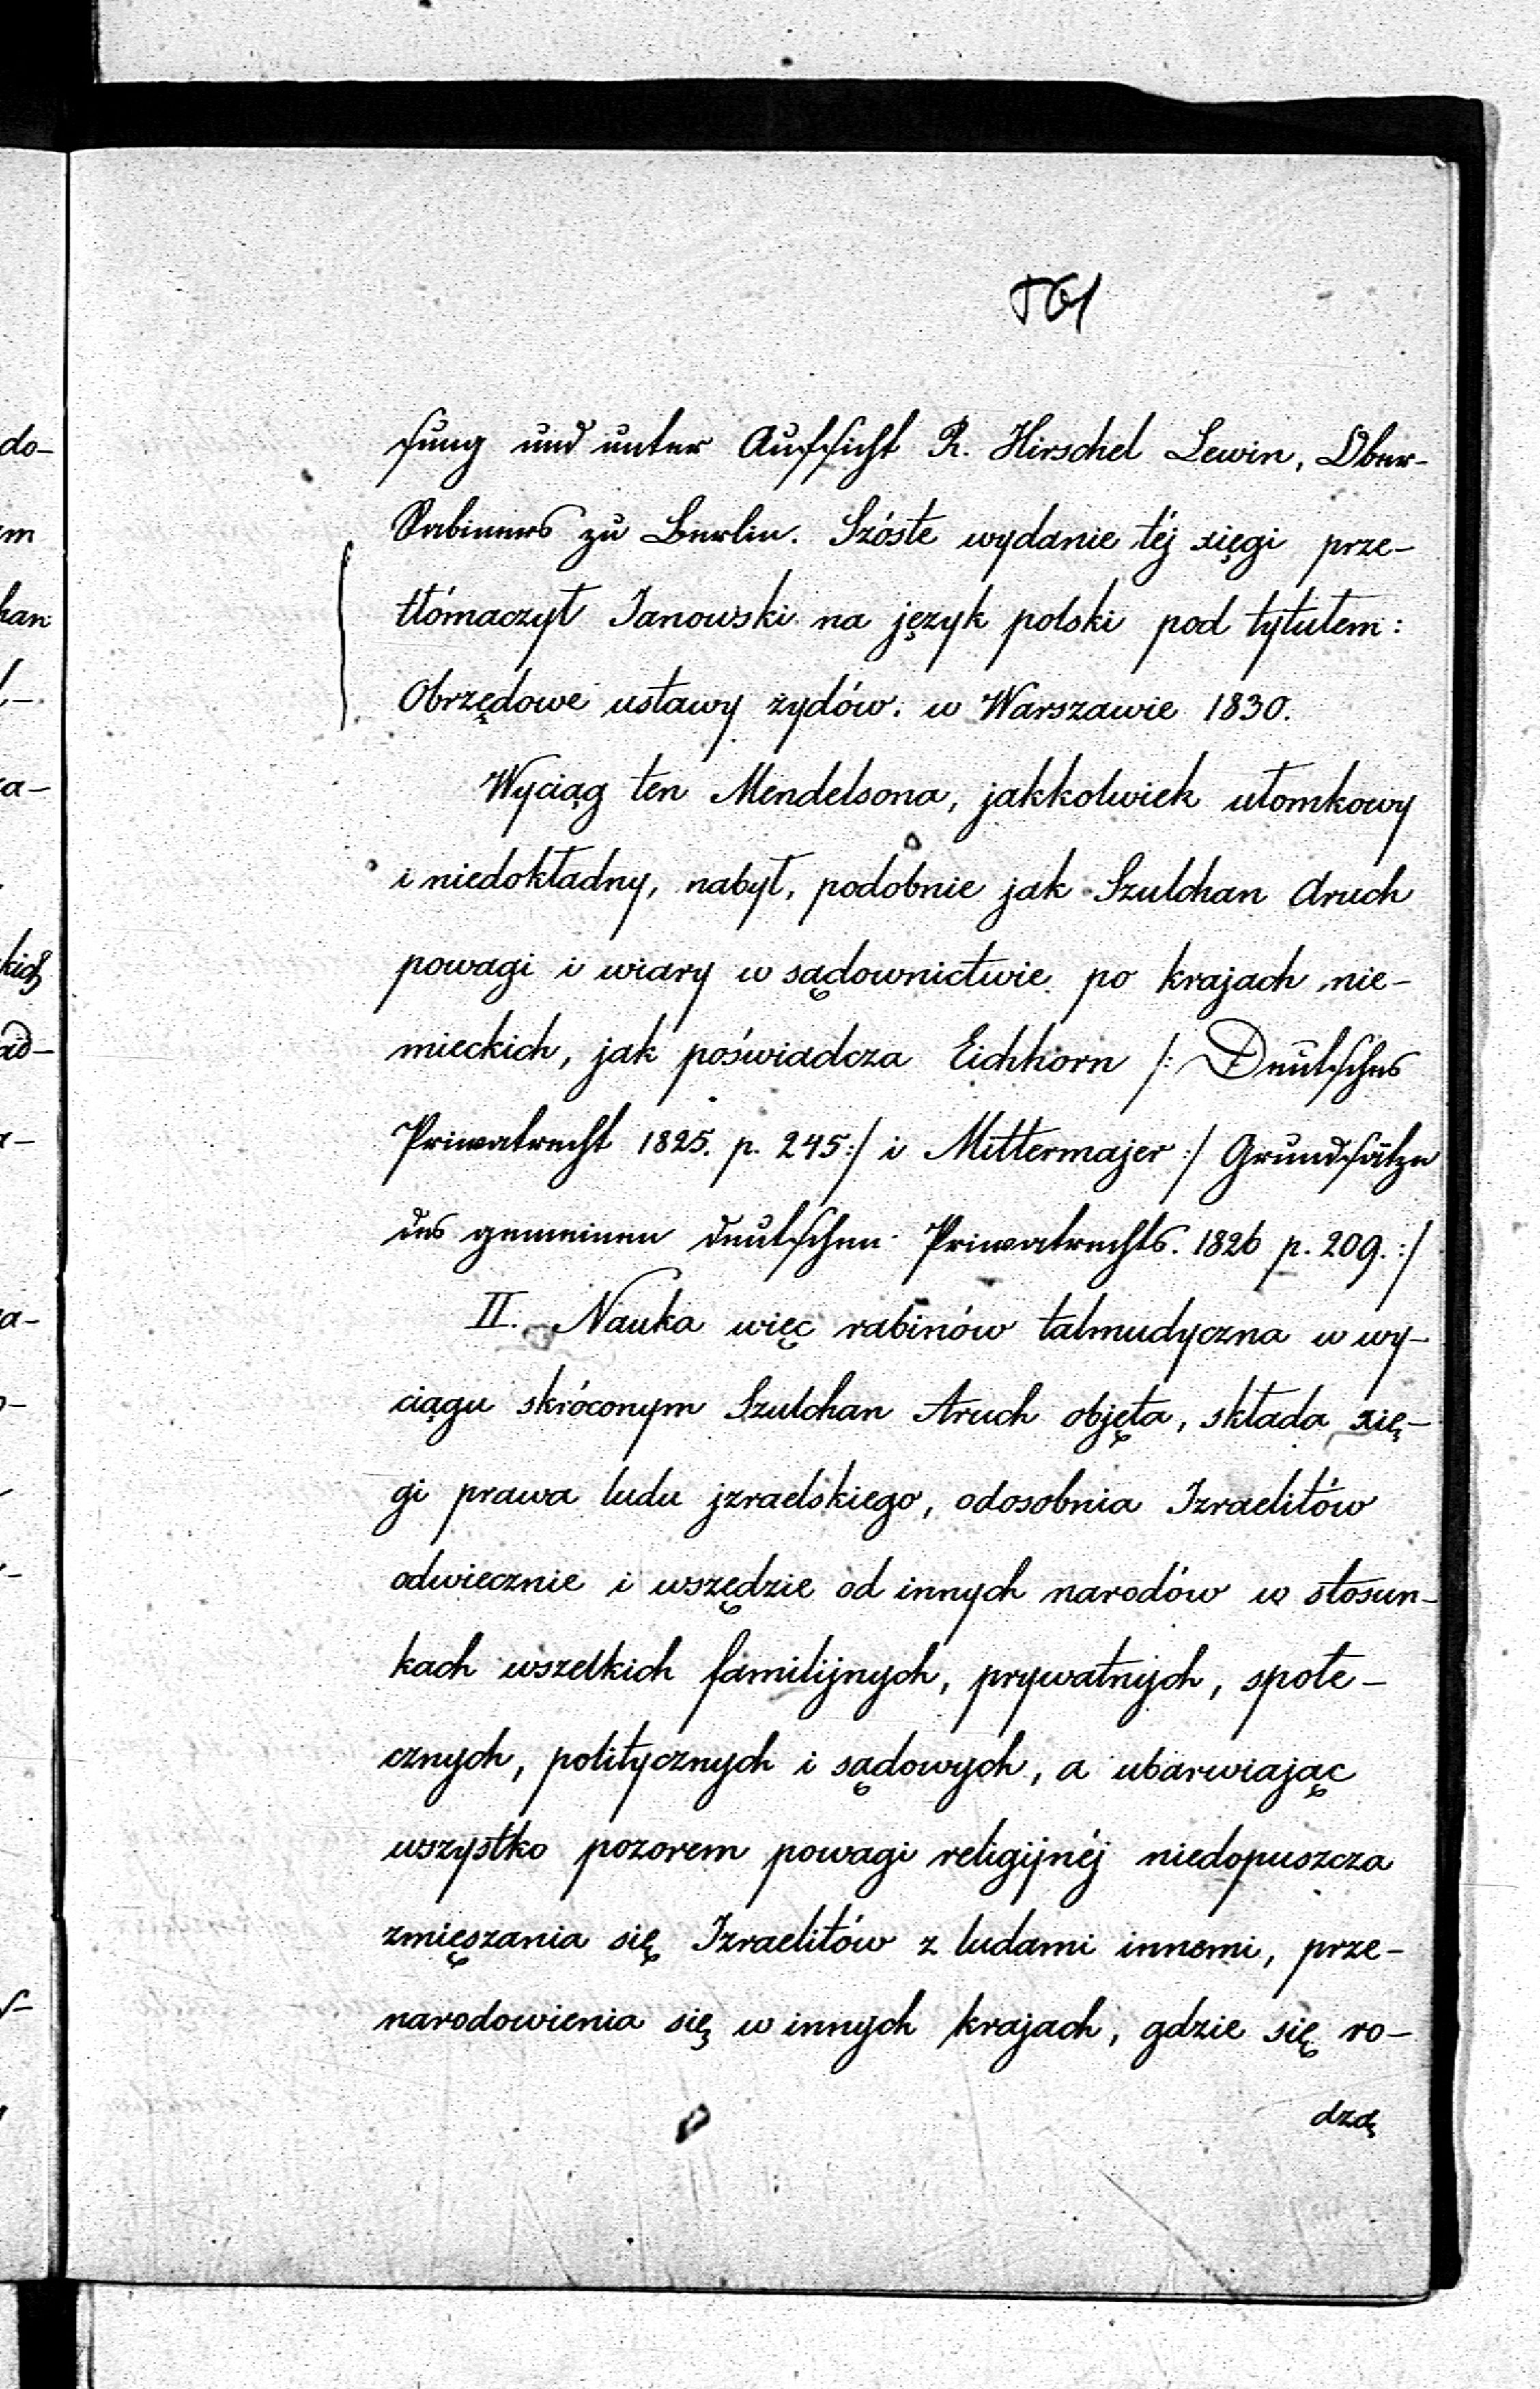 561
sung und unter Aufsicht R. Hirschel Lewin, Ober-
Rabiners zu Berlin. Szóste wydanie téj xięgi prze-
tłómaczył Janowski na język polski pod tytułem:
Obrzędowe ustawy żydów. w Warszawie 1830.
Wyciąg ten Mendelsona, jakkolwiek ułomkowy
i niedokładny, nabył, podobnie jak Szulchan Aruch
powagi i wiary w sądownictwie po krajach nie-
mieckich, jak poświadcza Eichhorn /: Deutsches
Privatrecht 1825. p. 245:/ i Mittermajer :/ Grundsätze
des gemeinen deutschen Privatrechts. 1826 p. 209. :/
II. Nauka więc rabinów talmudyczna w wy-
ciągu skróconym Szulchan Aruch objęta, składa xię-
gi prawa ludu jzraelskiego, odosobnia Izraelitów
odwiecznie i wszędzie od innych narodów w stosun-
kach wszelkich familijnych, prywatnych, społe-
cznych, politycznych i sądowych, a ubarwiając
wszystko pozorem powagi religijnéj niedopuszcza
zmięszania się Izraelitów z ludami innemi, prze-
narodowienia się w innych krajach, gdzie się ro-
dzą
do-